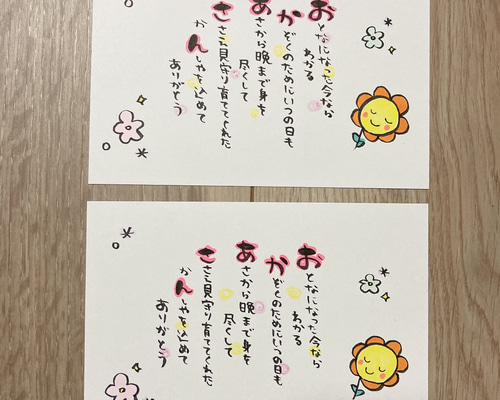 おとなになった今なら
わかる
かぞくのためにいつの日も
あさから晩まで身を
尽くして
ささえ見守り育ててくれた
かんしゃを込めて
ありがとう
おとなになった今なら
わかる
かぞくのためにいつの日も
あさから晩まで身を
尽くして
ささえ見守り育ててくれた
かんしゃを込めて
ありがとう